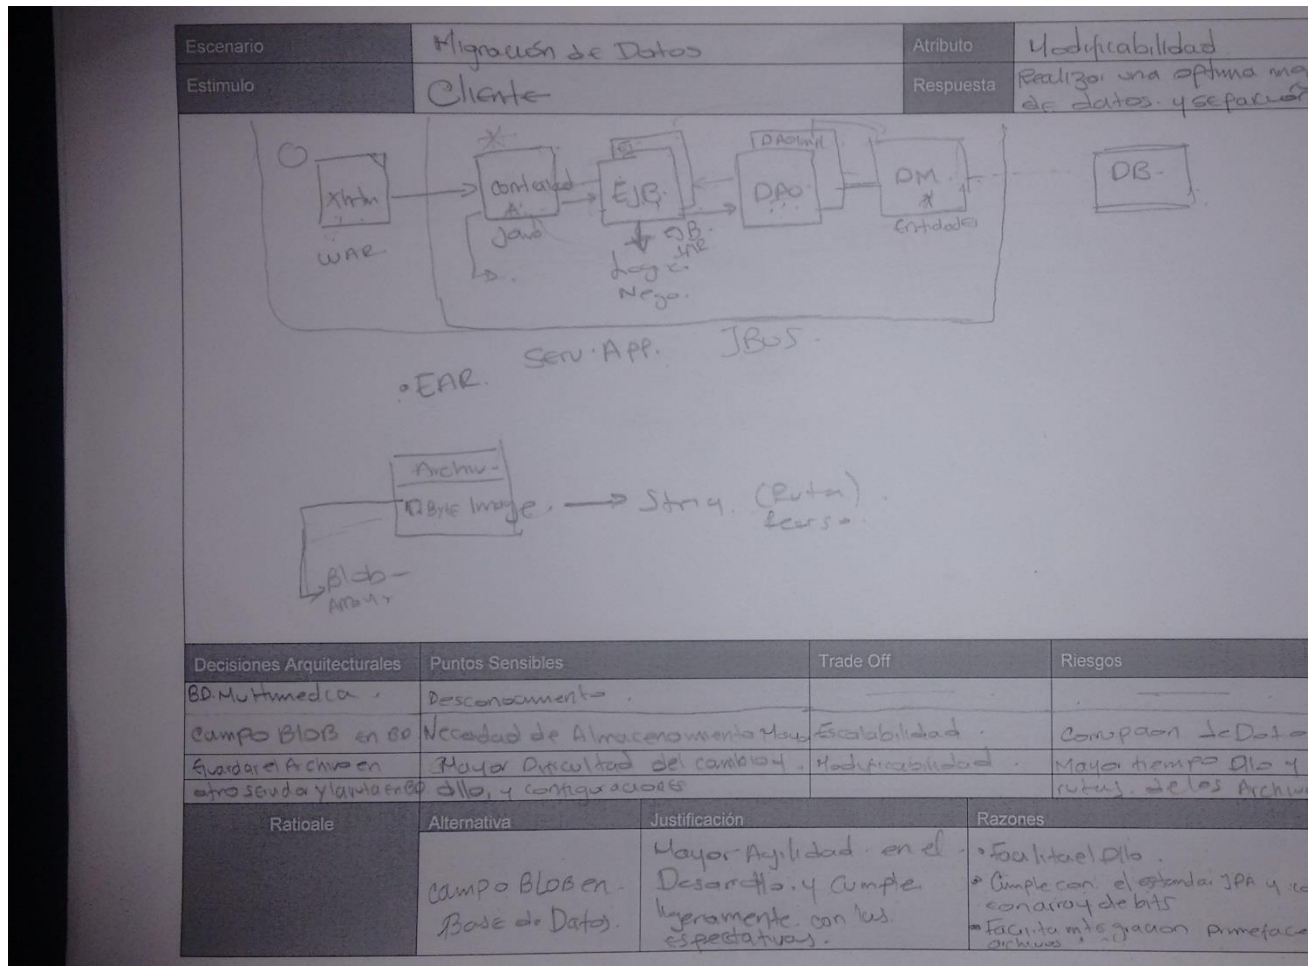 Escenario Migración de Datos Atributo Modificabilidad
Estimulo Cliente Respuesta Realizar una optima
de datos. y
Xhtm
WAR
A
Java
EJB.
JAR
Logic.
Nego.
DAO
DM
Entidades
DB.
Serv. App.
• EAR.
Byte Image. String (Ruta)
Blob
Decisiones Arquitecturales Puntos Sensibles Trade Off Riesgos
BD. Multimedia. Desconocimento
Campo BLOB en BD Necesidad de Almacenamiento Escalabilidad.
Guardar el Archivo en Mayor Dificultad del cambio y Modificabilidad. Mayor tiempo Dllo y
otro servidor y la ruta en BD dllo, y configuraciones rutas. de los
Ratioale Alternativa Justificación Razones
Campo BLOB en
Base de Datos.
Mayor Agilidad en el
Desarrollo. y Cumple
ligeramente con las
espectativas.
• Facilita el Dllo.
• Cumple con el estandar JPA y
con array de bits
• Facilita integracion
archivos